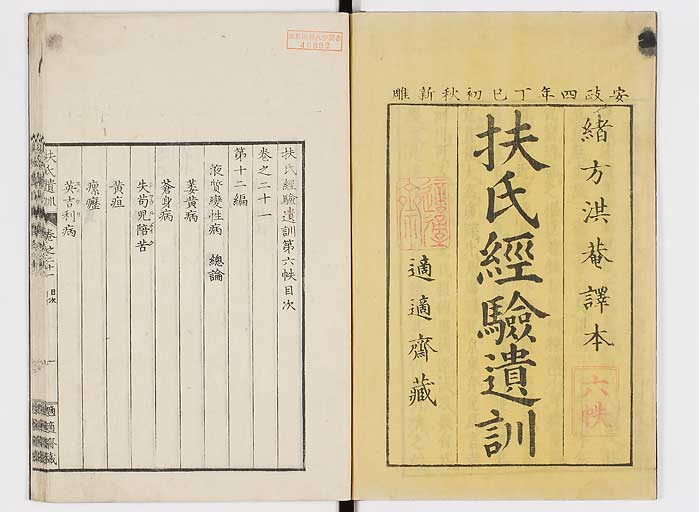 安政四年丁巳初秋新雕
緒方洪菴譯本
六帙
扶氏經驗遺訓
適適齋藏
扶氏經驗遺訓第六帙目次
卷之二十一
第十二編
液質變性病 總論
萎黄病
蒼身病
失苟兒陪苦
黄疸
瘰癧
英吉利病
扶氏遺訓 卷之二十一 目次 一
適適齋藏
46892